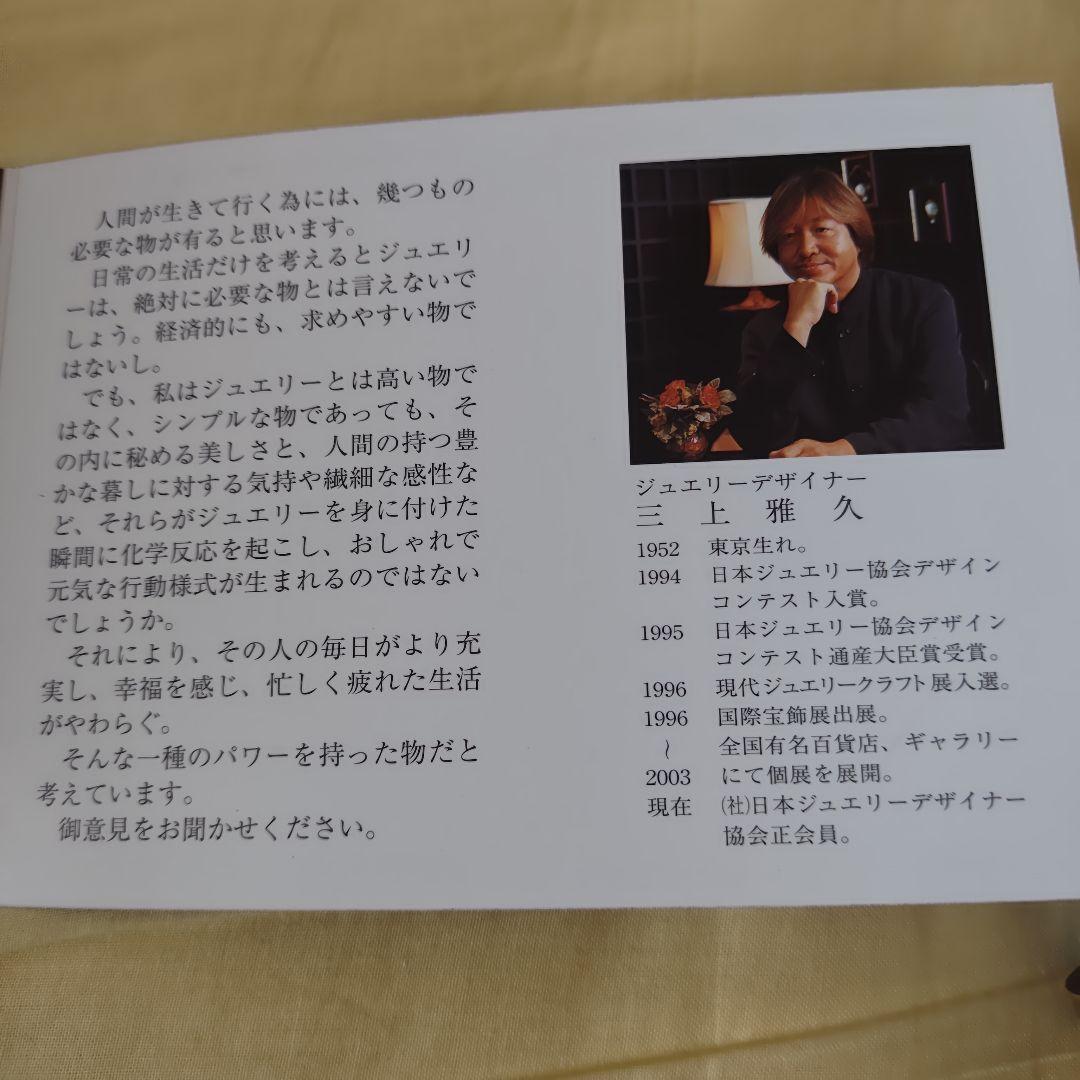 人間が生きて行く為には、幾つもの
必要な物が有ると思います。
日常の生活だけを考えるとジュエリ
ーは、絶対に必要な物とは言えないで
しょう。経済的にも、求めやすい物で
はないし。
でも、私はジュエリーとは高い物で
はなく、シンプルな物であっても、そ
の内に秘める美しさと、人間の持つ豊
かな暮しに対する気持や繊細な感性な
ど、それらがジュエリーを身に付けた
瞬間に化学反応を起こし、おしゃれで
元気な行動様式が生まれるのではない
でしょうか。
それにより、その人の毎日がより充
実し、幸福を感じ、忙しく疲れた生活
がやわらぐ。
そんな一種のパワーを持った物だと
考えています。
御意見をお聞かせください。
ジュエリーデザイナー
三 上 雅 久
1952 東京生れ。
1994 日本ジュエリー協会デザイン
コンテスト入賞。
1995 日本ジュエリー協会デザイン
コンテスト通産大臣賞受賞。
1996 現代ジュエリークラフト展入選。
1996 国際宝飾展出展。
〜 全国有名百貨店、ギャラリー
2003 にて個展を展開。
現在 (社)日本ジュエリーデザイナー
協会正会員。